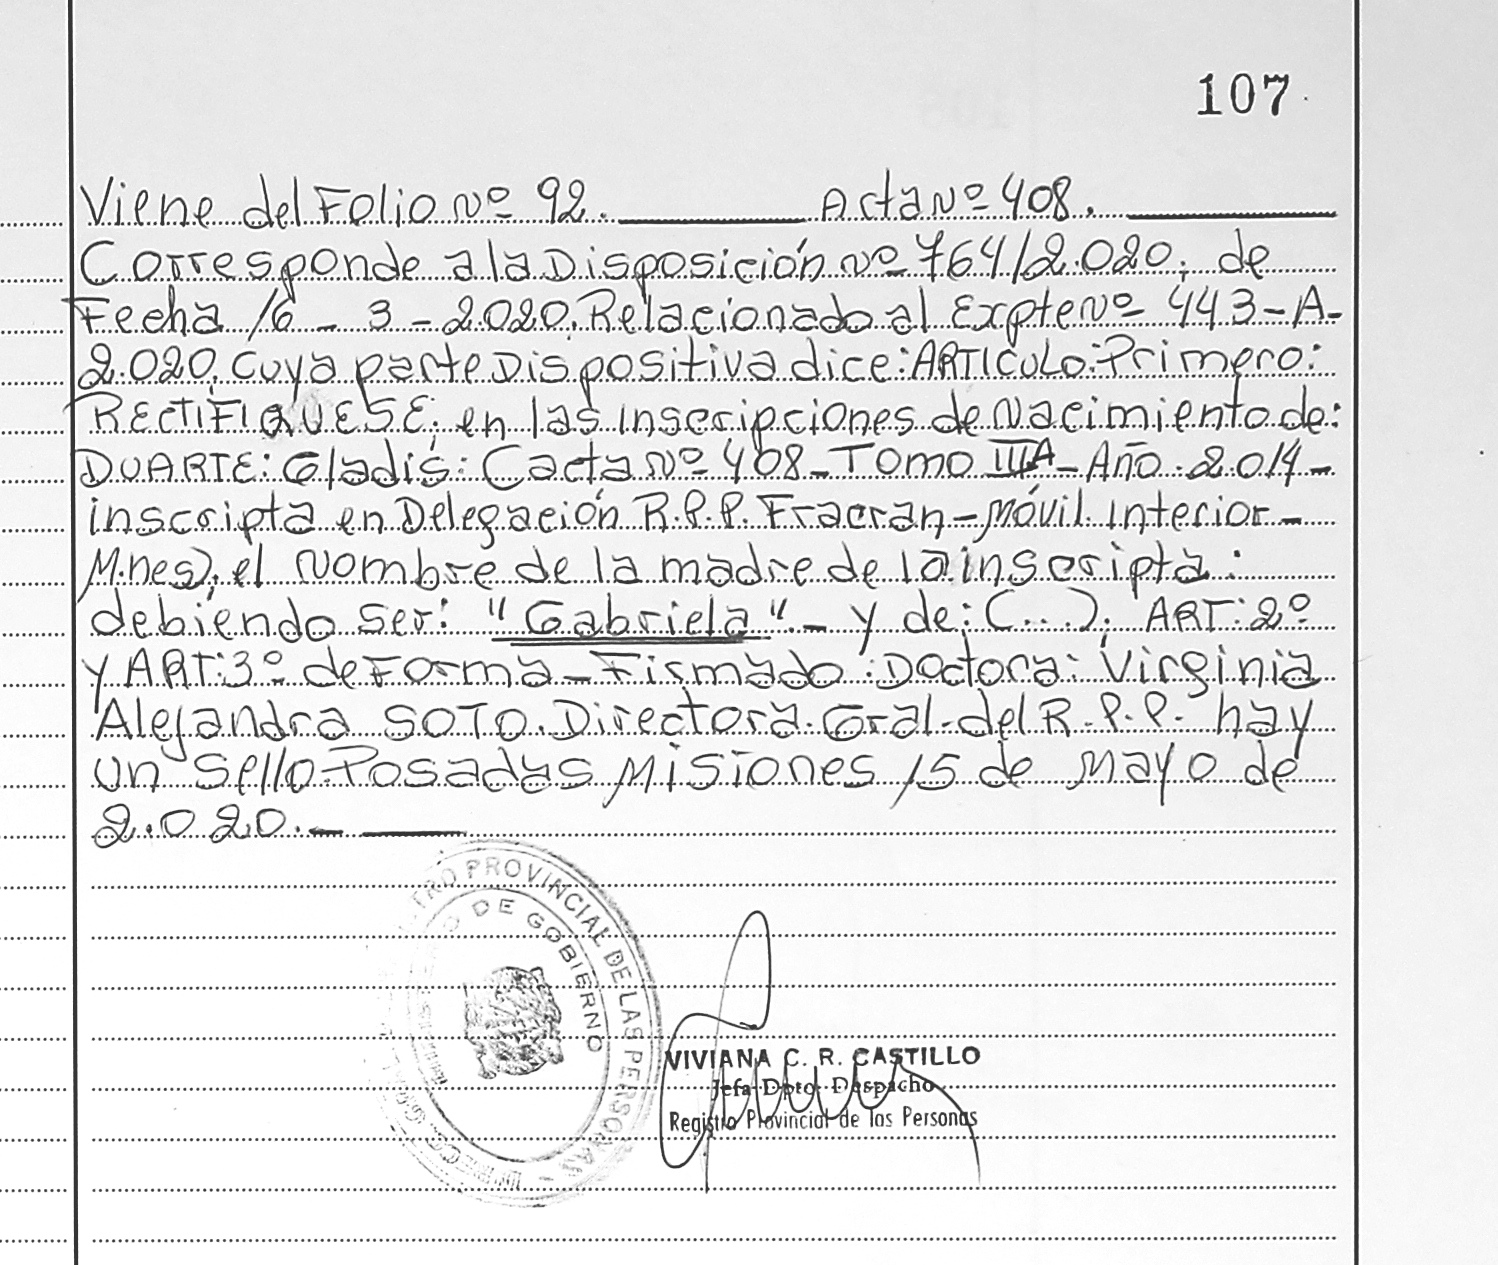 107
Viene del Folio Nº 92. Acta Nº 408.
Corresponde a la Disposición Nº 764/2.020, de
Fecha 16 - 3 - 2.020, Relacionado al Expte Nº 443-A-
2.020, Cuya parte Dispositiva dice: ARTICULO: Primero:
RECTIFIQUESE, en las inscripciones de Nacimiento de:
DUARTE: Gladis: (acta Nº 408 - TOMO III A - Año 2.014 -
inscripta en Delegación R.P.P. Fracran - Móvil Interior -
M.nes), el Nombre de la madre de la inscripta:
debiendo ser: "Gabriela". - y de; (...), ART: 2º
y ART: 3º de Forma - Firmado: Doctora: Virginia
Alejandra SOTO. Directora. Gral. del R.P.P. hay
un Sello. Posadas Misiones 15 de Mayo de
2.020. -
PROVINCIAL DE LAS PERSONAS
DE GOBIERNO
VIVIANA C. R. CASTILLO
Jefa Dpto Despacho
Registro Provincial de las Personas